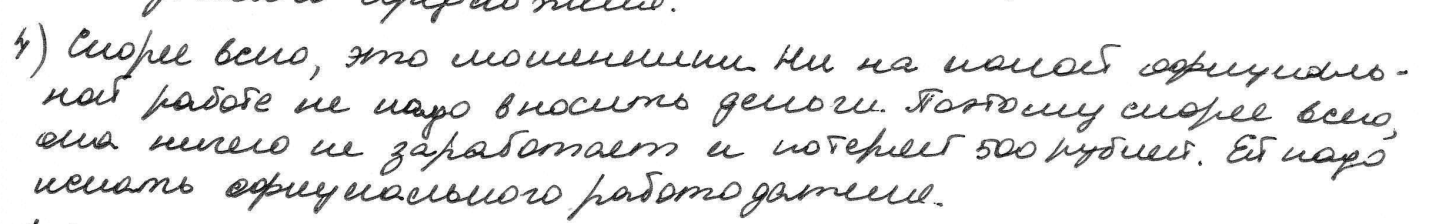 предложения.
4) Скорее всего, это мошенники. Ни на какой официаль-
ной работе не надо вносить деньги. Поэтому скорее всего,
она ничего не заработает и потеряет 500 рублей. Ей надо
искать официального работодателя.